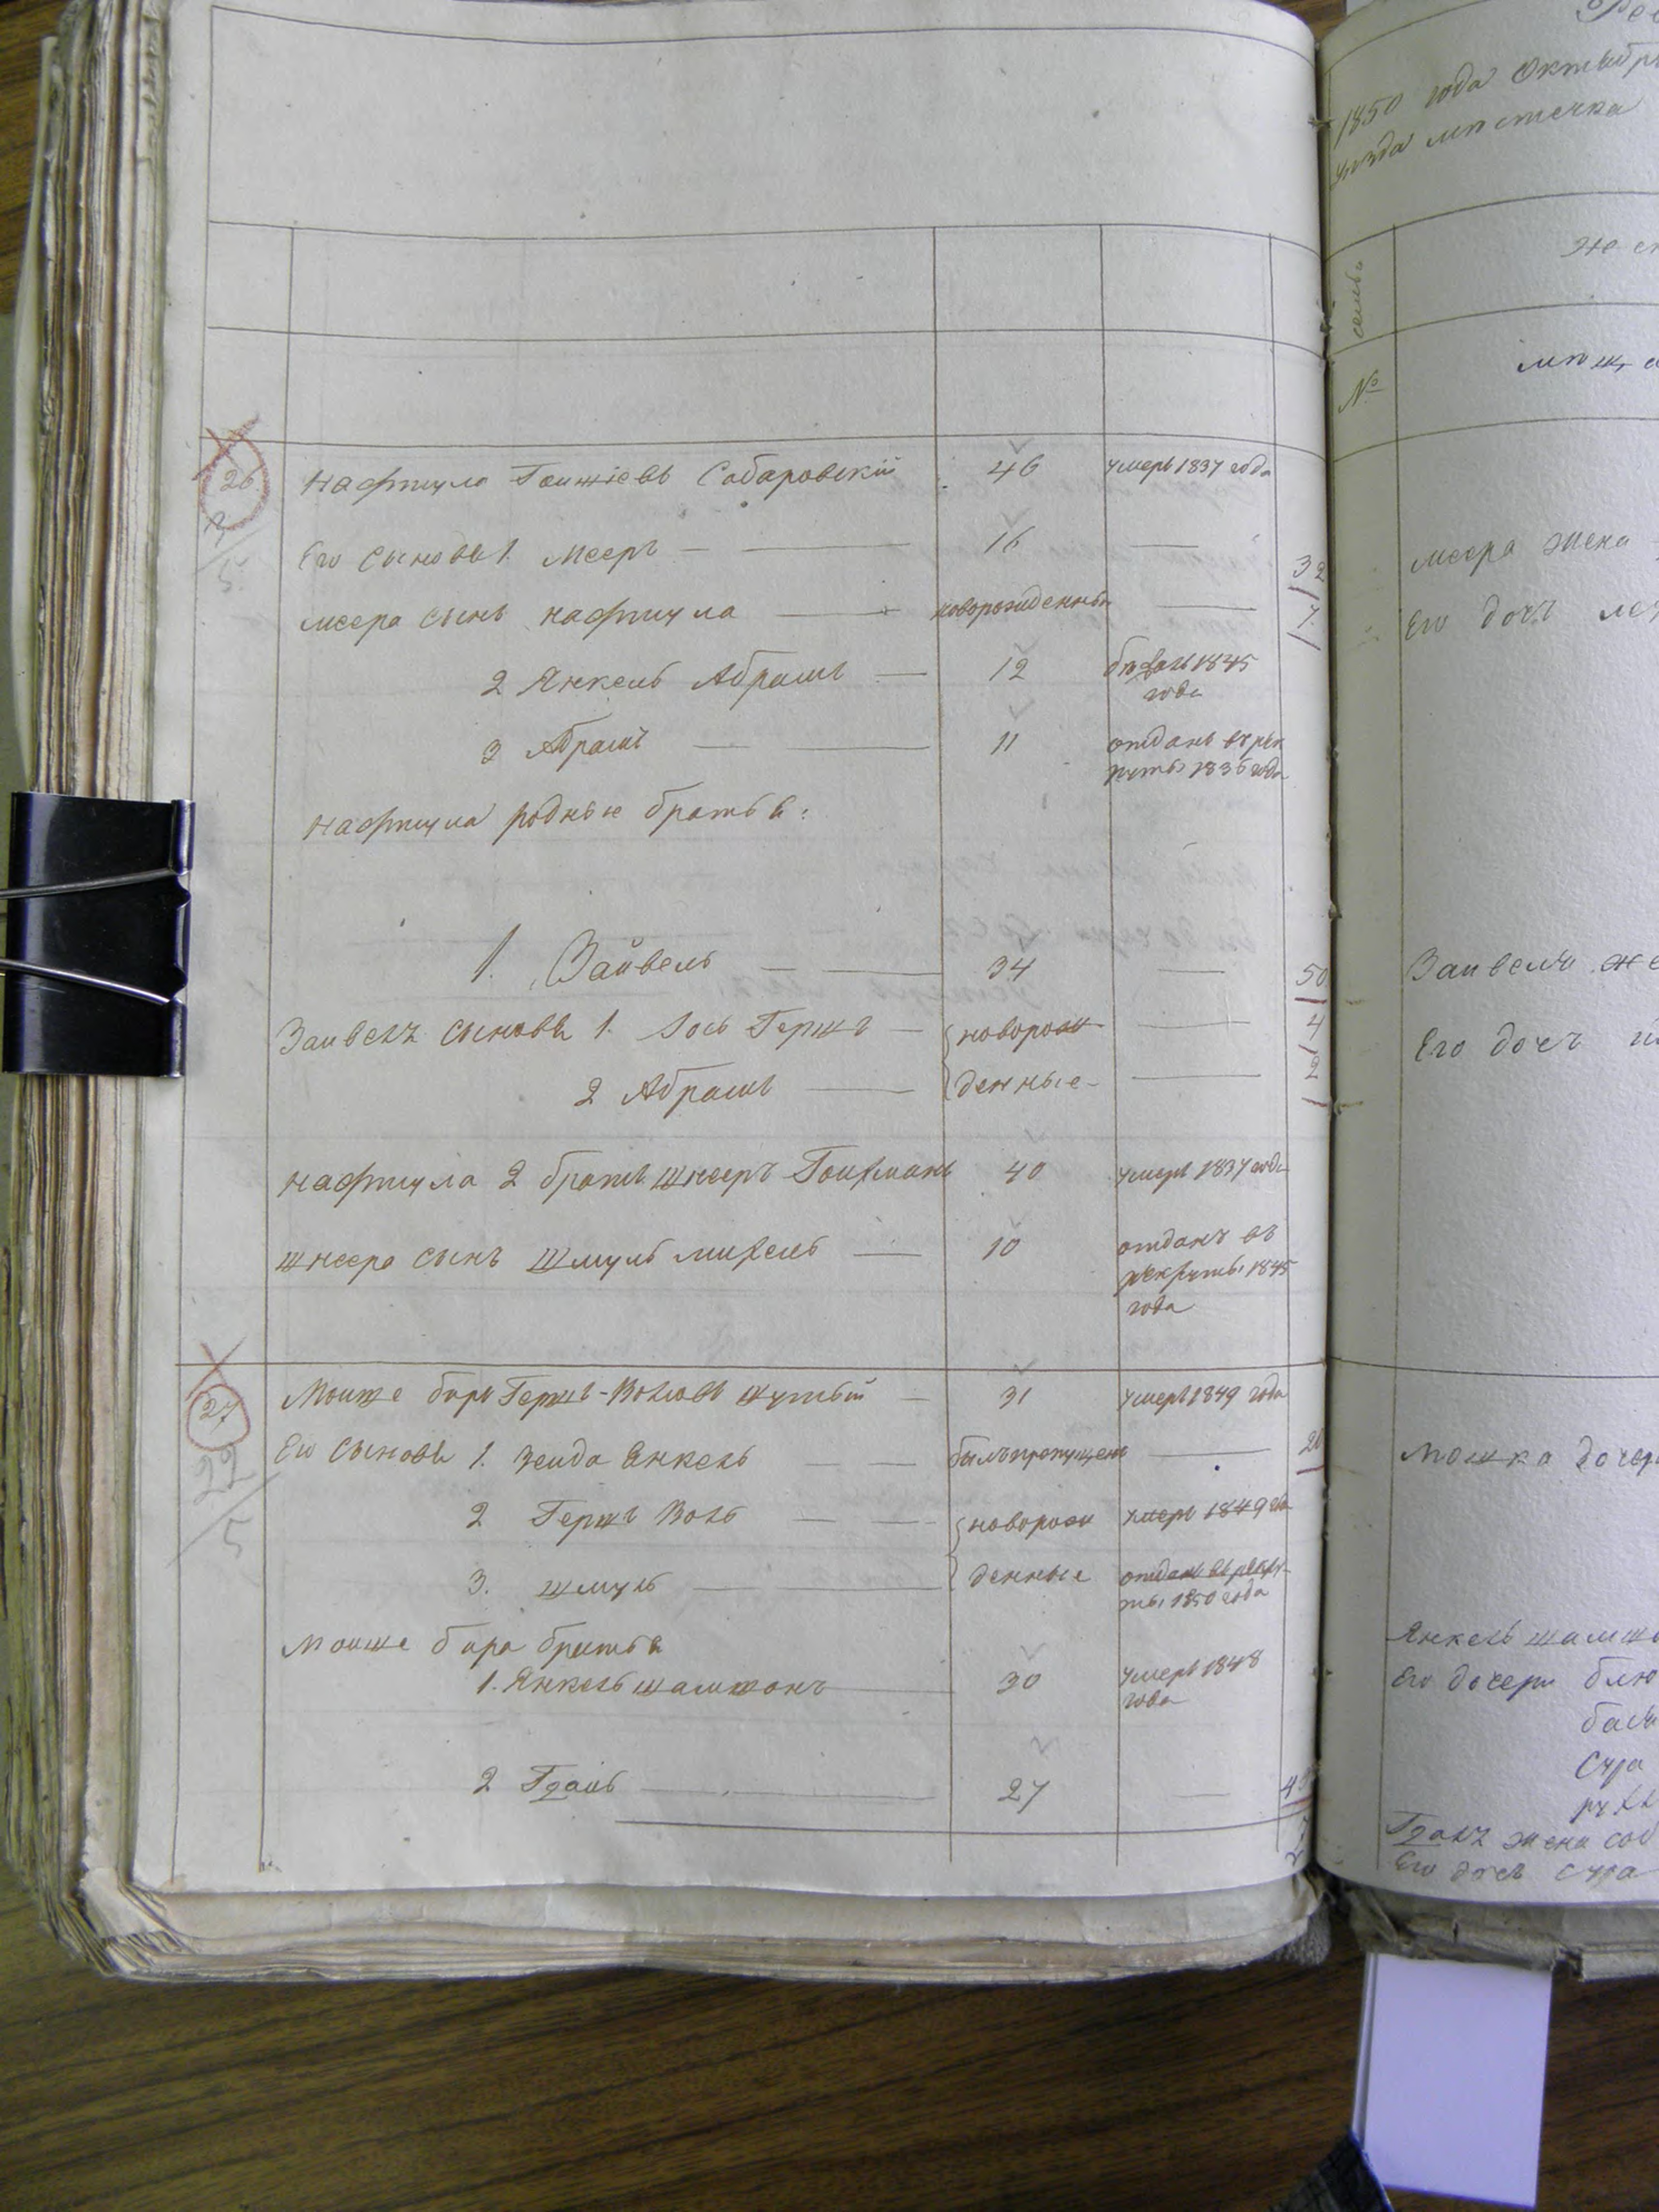 26
Нафтула Гошкіевъ Сабаровскій 46 умеръ 1837 года
Его сыновья 1. Мееръ — 16 — 32
Меера сынъ Нафтула — новорожденный — 7
2 Янкель Абрамъ — 12 бѣжалъ 1845
года
3 Абрамъ — 11 отданъ въ рек
руты 1836 года
Нафтула родные братья:
1. Зайвель — 34 — 50
Зайвеля сыновья 1. Іось Гершъ — новорож — 4
2 Абрамъ — денные — 2
Нафтула 2 братъ Шнееръ Гонхманъ 40 умеръ 1837 года
Шнеера сынъ Шмуль Михель — 10 отданъ въ
рекруты 1845
года
27
22
5
Мошке Беръ Гершъ-Волховъ Шутый — 31 умеръ 1849 года
Его сыновья 1. Зейда Янкель — былъ пропущенъ — 20
2 Гершъ Волъ — новорож умеръ 1849 года
3. Шмуль — денные отданъ въ рекру
ты 1850 года
братья
1. Янкель Шамшонъ 30 умеръ 1848
года
2 Гдаль — 27 —
1850 года Октября
уѣзда мѣстечка
семьи
№
Меера жена
Его дочь
Зайвеля же
Его дочь
Мошка дочер
Янкель Шамшо
Его дочери Блю
Бася
Сура
Гдаля жена
Его дочь Сура